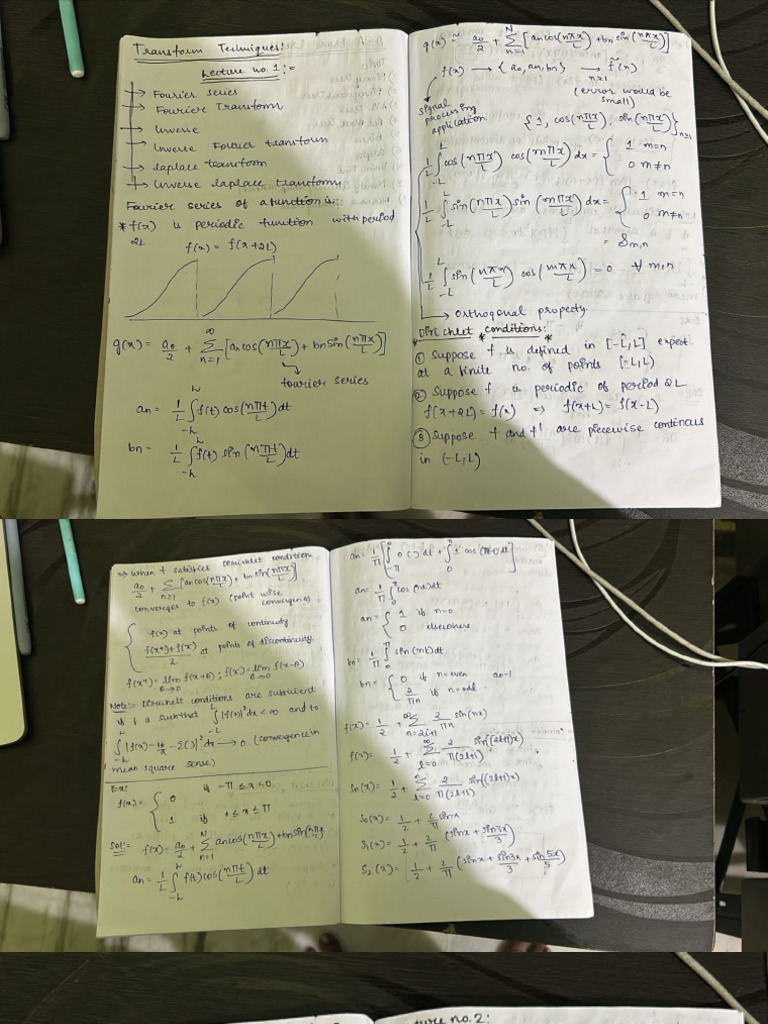 Transform Techniques:
Lecture no. 1:=
→ Fourier series
→ Fourier Transform
→ Inverse
→ Inverse Fourier transform
→ Laplace transform
→ Inverse Laplace transform
Fourier series of a function is:
* f(x) is periodic function with period
2L
f(x) = f(x+2L)
g(x) = a₀/2 + ∑_{n=1}^{∞} [an cos(nπx/L) + bn sin(nπx/L)]
↳ fourier series
an = 1/L ∫_{-L}^{L} f(t) cos(nπt/L) dt
bn = 1/L ∫_{-L}^{L} f(t) sin(nπt/L) dt
g(x) ≅ a₀/2 + ∑_{n=1}^{N} [an cos(nπx/L) + bn sin(nπx/L)]
f(x) → {a₀, an, bn}_{n≥1} → f̃(x)
(error would be
small)
signal
processing
application
{1, cos(nπx/L), sin(nπx/L)}_{n≥1}
1/L ∫_{-L}^{L} cos(nπx/L) cos(mπx/L) dx = { 1 m=n
0 m≠n
1/L ∫_{-L}^{L} sin(nπx/L) sin(mπx/L) dx = { 1 m=n
0 m≠n
= δm,n
1/L ∫_{-L}^{L} sin(nπx/L) cos(mπx/L) = 0 ∀ m,n
→ Orthogonal property.
* Dirichlet * conditions: *
① Suppose f is defined in [-L,L] expect
at a finite no. of points [-L,L)
② Suppose f is periodic of period 2L
f(x+2L) = f(x) ⇒ f(x+L) = f(x-L)
③ Suppose f and f' are piecewise continous
in (-L,L)
→ When f satisfies Dirichlet condition
a₀/2 + ∑_{n≥1} [an cos(nπx/L) + bn sin(nπx/L)]
converges to f(x) (point wise
convergence)
{ f(x) at points of continuity
f(x⁺)+f(x⁻)/2 at points of discontinuity
f(x⁺) = lim f(x+θ) ; f(x⁻) = lim f(x-θ)
θ→0 θ→0
Note:- Dirichlet conditions are sufficient
if f is such that ∫_{-L}^{L} |f(x)|² dx < ∞ and to
∫_{-L}^{L} |f(x) - a₀/2 - ∑( )|² dx → 0 (convergence in
mean square sense)
Ex:
f(x) = { 0 if -π ≤ x < 0
1 if 0 ≤ x ≤ π
Sol:= f(x) = a₀/2 + ∑_{n=1}^{N} an cos(nπx/L) + bn sin(nπx/L)
an = 1/L ∫_{-L}^{L} f(t) cos(nπt/L) dt
an = 1/π [∫ 0( ) dt + ∫_{0}^{π} 1 cos(nt) dt]
an = 1/π ∫_{0}^{π} cos(nt) dt
an = { 1 if n=0
0 elsewhere
bn = 1/π ∫_{0}^{π} sin(nt) dt
bn = { 0 if n=even
2/πn if n=odd
f(x) = 1/2 + ∑_{n=2l+1}^{∞} 2/πn sin(nx)
f(x) = 1/2 + ∑_{l=0}^{∞} 2/π(2l+1) sin((2l+1)x)
Sn(x) = 1/2 + ∑_{l=0}^{n} 2/π(2l+1) sin((2l+1)x)
S₀(x) = 1/2 + 2/π sinx
S₁(x) = 1/2 + 2/π (sinx + sin3x/3)
S₂(x) = 1/2 + 2/π (sinx + sin3x/3 + sin5x/5)
ture no. 2: